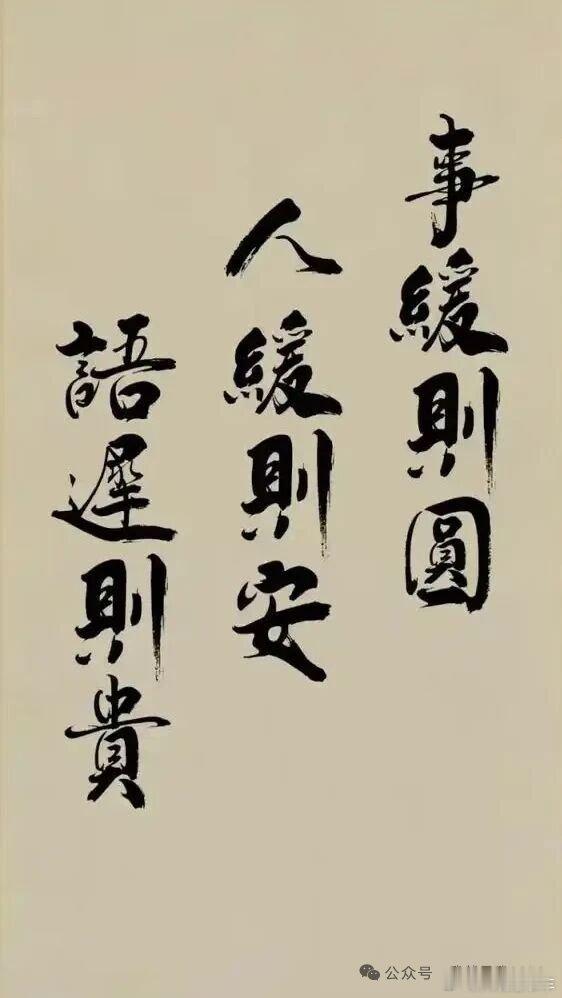 事緩則圓
人緩則安
語遲則貴
公众号